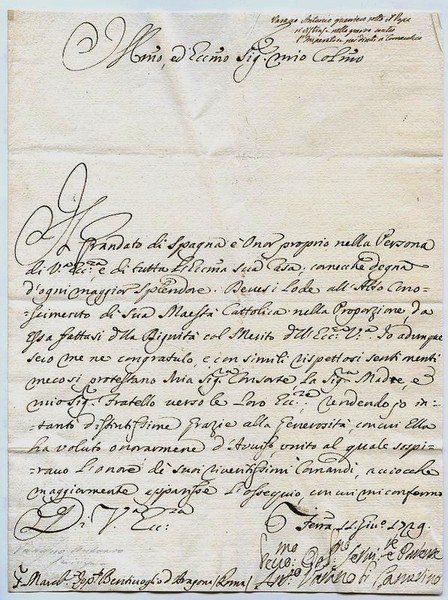 Varano Antonio
Illmo, ed Eccmo Sig.r mio Colmo
Il Grandato di Spagna è Onor proprio nella Persona
di V.ra Ecc.za e di tutta l'Eccma sua Casa, comeche degna
d'ogni maggior Splendore. Devesi Lode all'Alto Cono=
scimento di Sua Maestà Cattolica nella Proporzione da
Essa fattasi della Dignità col Merito dell'Ecc.za V.ra Io adunque
seco me ne congratulo e con simili rispettosi sentimenti
mecosi protestano mia Sig.ra Consorte la Sig.ra Madre, e
mio Sig.r Fratello verso le Loro Ecc.ze, rendendo in=
tanti distintissime Grazie alla Generosità con cui Ella
ha voluto onorarmene d'Avviso, unito al quale sospi=
ravo l'onore di suoi riveritissimi Comandi, acciocche
maggiormente apparisse l'Ossequio, con cui mi confermo
Di V.ra Ecc.za
Ferra 1729
March. Bentivoglio d'Aragona (Roma)